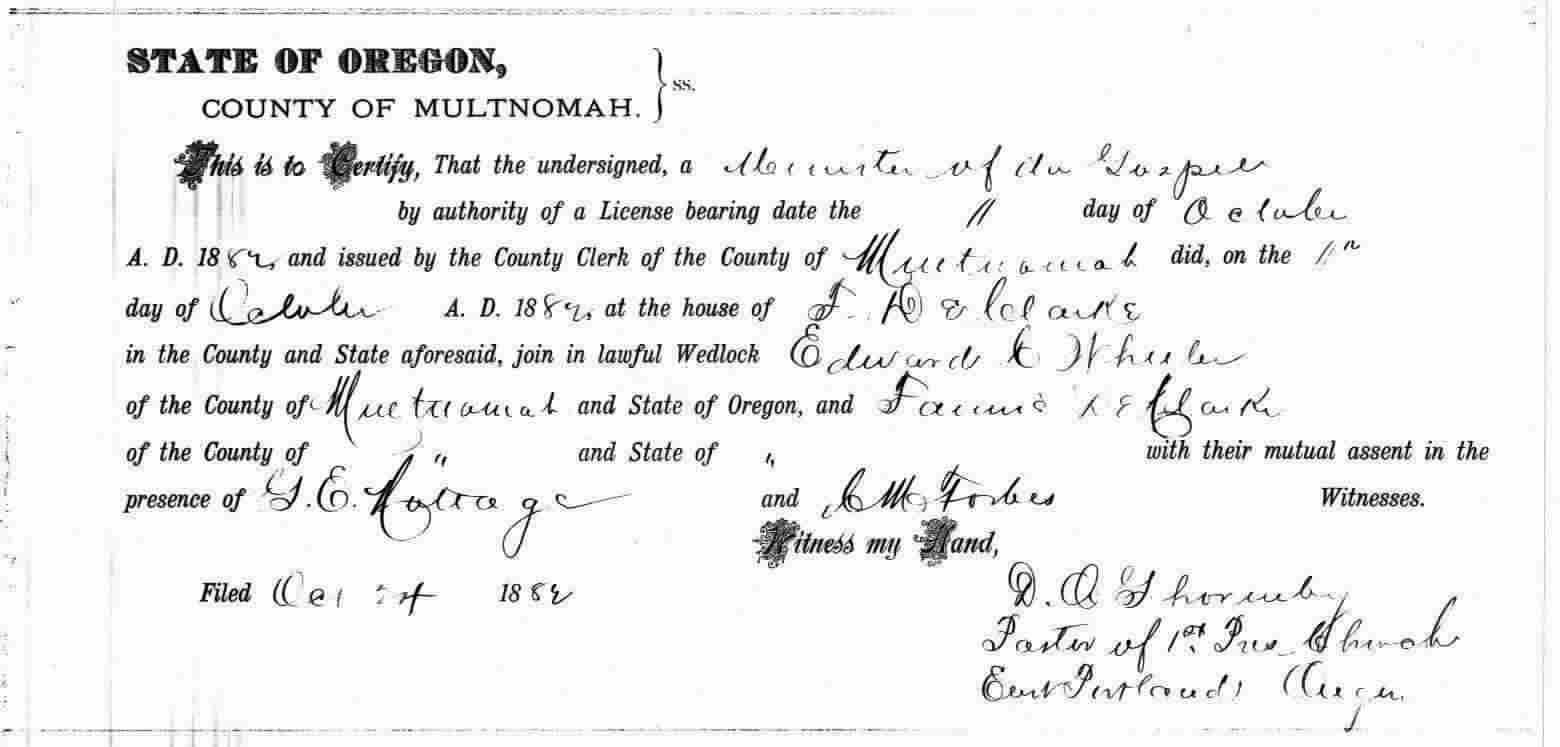 STATE OF OREGON,
COUNTY OF MULTNOMAH. } ss.
This is to Certify, That the undersigned, a Minister of the Gospel
by authority of a License bearing date the 11 day of October
A. D. 1882, and issued by the County Clerk of the County of Multnomah did, on the 11"
day of October A. D. 1882, at the house of F. D
in the County and State aforesaid, join in lawful Wedlock Edward C Wheeler
of the County of Multnomah and State of Oregon, and Fannie Clarke
of the County of " and State of " with their mutual assent in the
presence of G. E. and C M Forbes Witnesses.
Witness my Hand,
Filed Oct 1882
D. O Ghormley
Pastor of 1st. Pres. Church
East Portland, Oregon